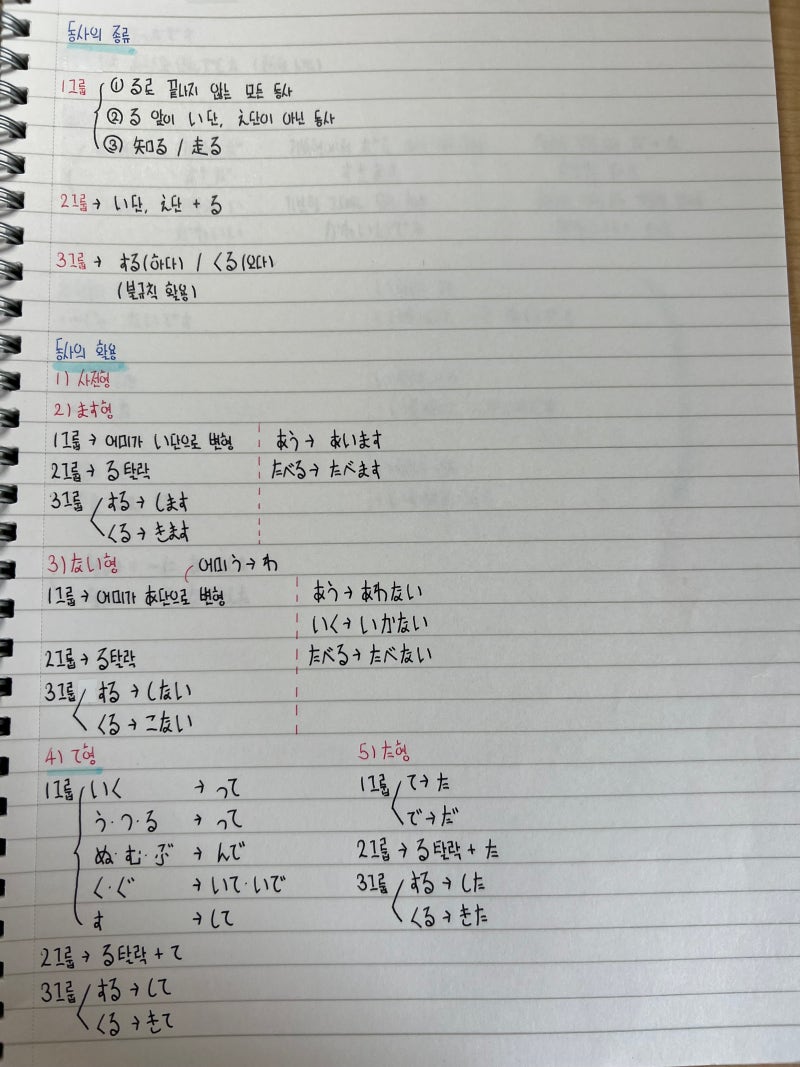 동사의 종류
1그룹 ① る로 끝나지 않는 모든 동사
② る 앞이 い단, え단이 아닌 동사
③ 知る / 走る
2그룹 → い단, え단 + る
3그룹 → する(하다) / くる(오다)
(불규칙 활용)
동사의 활용
1) 사전형
2) ます형
1그룹 → 어미가 い단으로 변형 あう → あいます
2그룹 → る탈락 たべる → たべます
3그룹 する → します
くる → きます
3) ない형 어미 う → わ
1그룹 → 어미가 あ단으로 변형 あう → あわない
いく → いかない
2그룹 → る탈락 たべる → たべない
3그룹 する → しない
くる → こない
4) て형
1그룹 いく → って
う·つ·る → って
ぬ·む·ぶ → んで
く·ぐ → いて·いで
す → して
2그룹 → る탈락 + て
3그룹 する → して
くる → きて
5) た형
1그룹 て → た
で → だ
2그룹 → る탈락 + た
3그룹 する → した
くる → きた